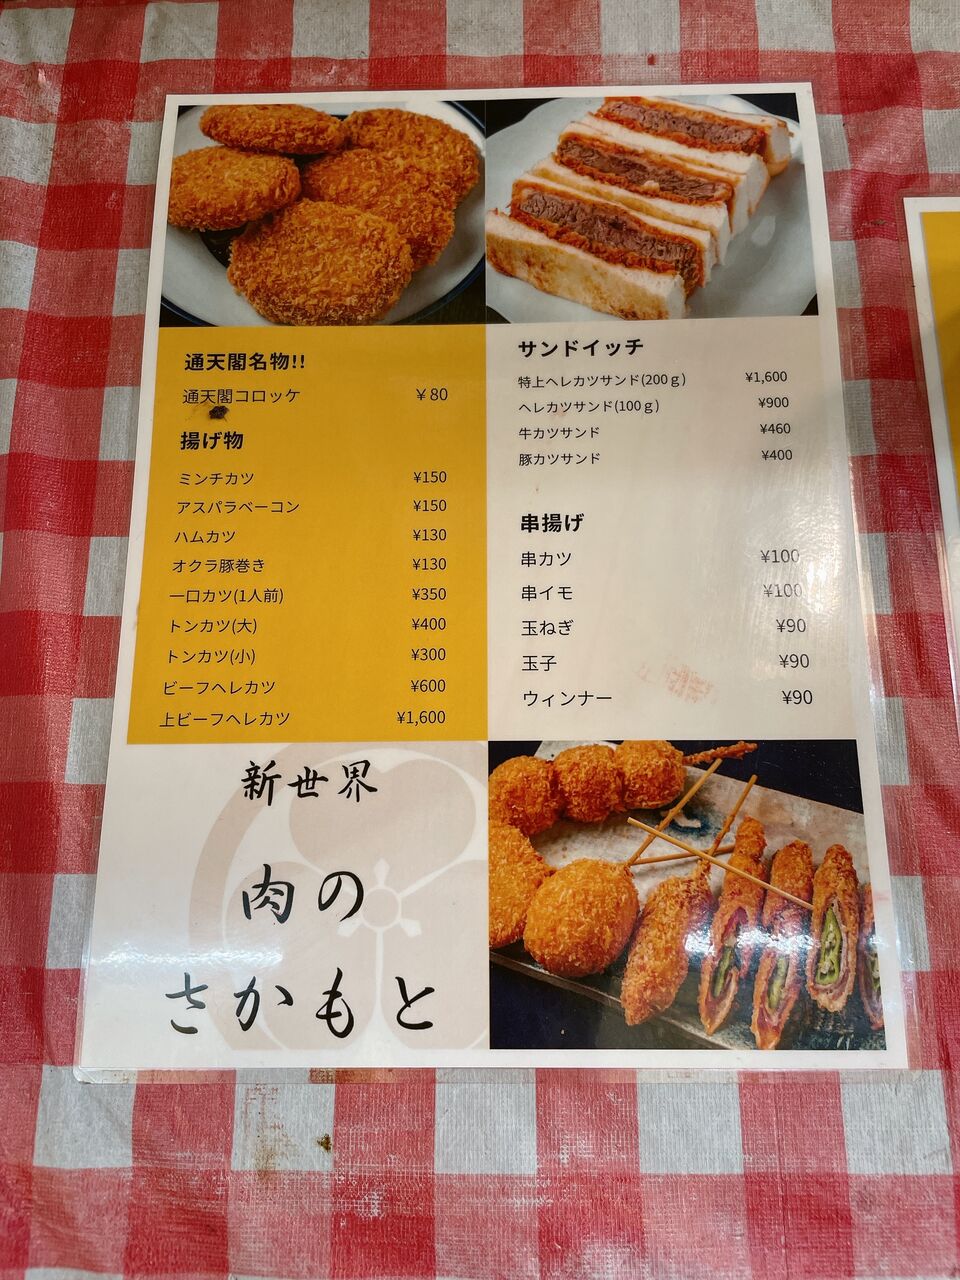 通天閣名物!!
通天閣コロッケ ￥80
揚げ物
ミンチカツ ¥150
アスパラベーコン ¥150
ハムカツ ¥130
オクラ豚巻き ¥130
一口カツ(1人前) ¥350
トンカツ(大) ¥400
トンカツ(小) ¥300
ビーフヘレカツ ¥600
上ビーフヘレカツ ¥1,600
サンドイッチ
特上ヘレカツサンド(200ｇ) ¥1,600
ヘレカツサンド(100ｇ) ¥900
牛カツサンド ¥460
豚カツサンド ¥400
串揚げ
串カツ ¥100
串イモ ¥100
玉ねぎ ¥90
玉子 ¥90
ウィンナー ¥90
新世界
肉の
さかもと